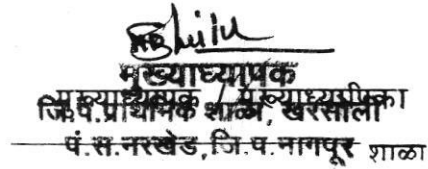 मुख्याध्यापक
मुख्याध्यापक / मुख्याध्यापिका
जि.प.प्राथमिक शाळा, खरसोली
पं.स.नरखेड,जि.प.नागपूर शाळा